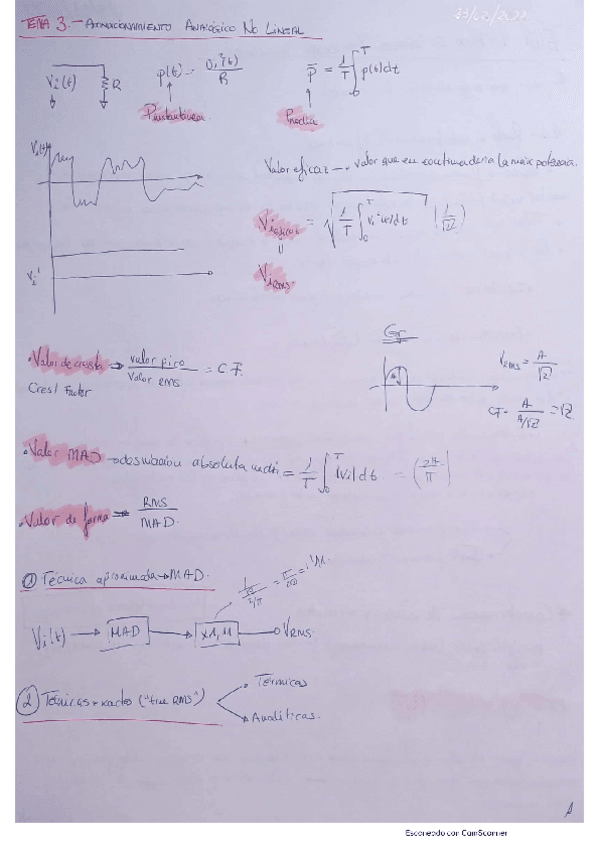 23/02/2022
TEMA 3.- ACONDICIONAMIENTO ANALÓGICO NO LINEAL
Vi(t) R p(t) = Vi²(t)/R p̄ = 1/T ∫₀ᵀ p(t)dt
Instantánea Media
Vi(t)
Valor eficaz → valor que en continua daría la misma potencia.
Vieficaz = √(1/T ∫₀ᵀ Vi²(t)dt) (1/√2)
Vi'
ViRMS
Ej
• Valor de cresta → valor pico / Valor RMS = C.F.
Crest Factor
VRMS = A/√2
CF = A/(A/√2) = √2
• Valor MAD → desviación absoluta media = 1/T ∫₀ᵀ |Vi|dt = (2A/π)
• Valor de forma → RMS/MAD
① Técnica aproximada → MAD.
(1/√2)/(2/π) = π/(2√2) = 1'11.
Vi(t) → MAD → x1,11 → VRMS
② Técnicas exactas ("true RMS")
Térmicas
Analíticas.
1
Escaneado con CamScanner